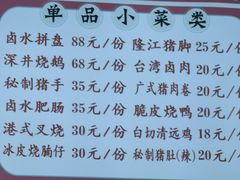 单品小菜类
卤水拼盘 88元/份 隆江猪脚 25元/份
深井烧鹅 68元/份 台湾卤肉 20元/份
秘制猪手 35元/份 广式猪肉卷 20元/份
卤水肥肠 35元/份 脆皮烧鸭 20元/份
港式叉烧 30元/份 白切清远鸡 18元/份
冰皮烧腩仔 30元/份 秘制猪肚(辣) 20元/份